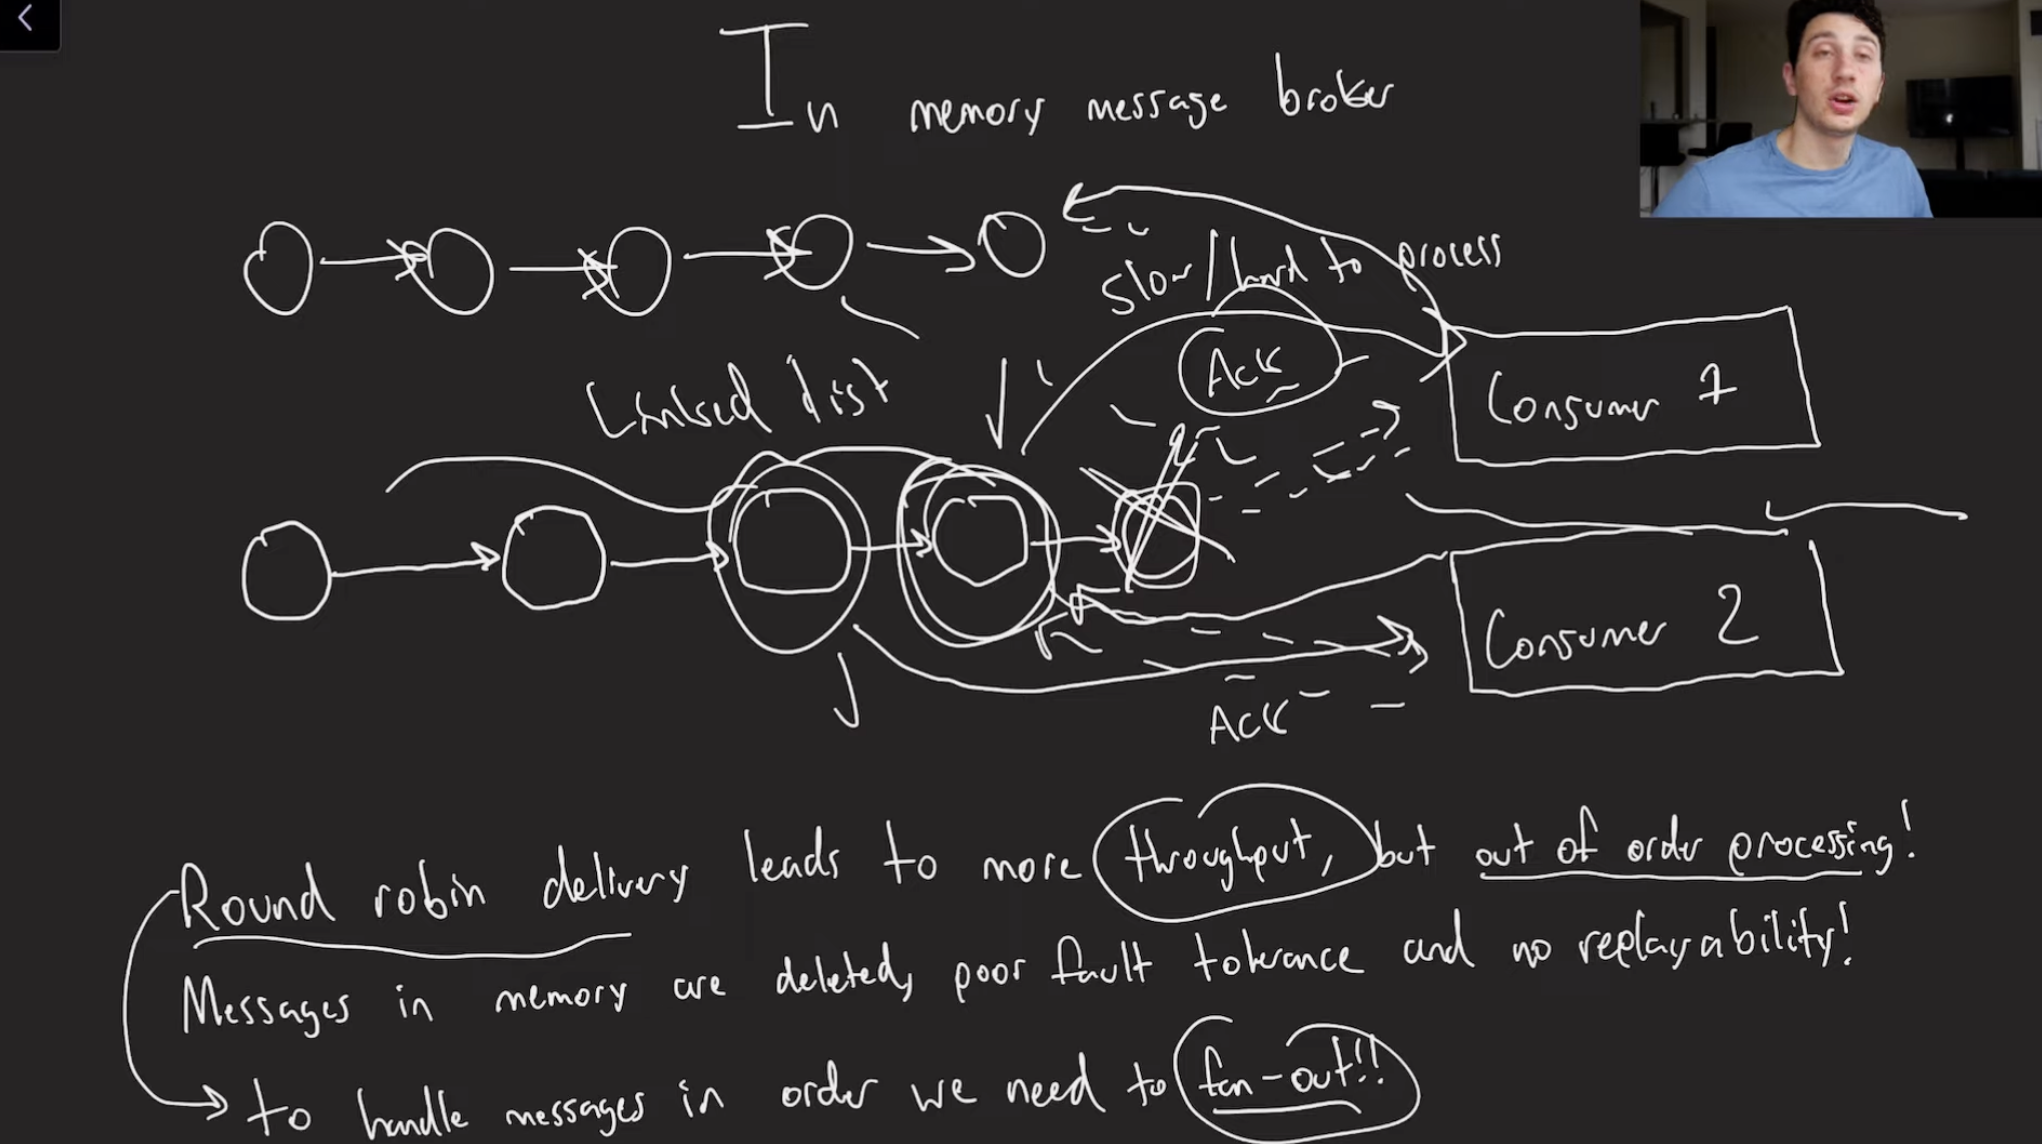 In memory message broker
slow/hard to process
Ack
Linked list
Consumer 1
Consumer 2
Ack
Round robin delivery leads to more throughput, but out of order processing!
Messages in memory are deleted, poor fault tolerance and no replayability!
to handle messages in order we need to fan-out!!